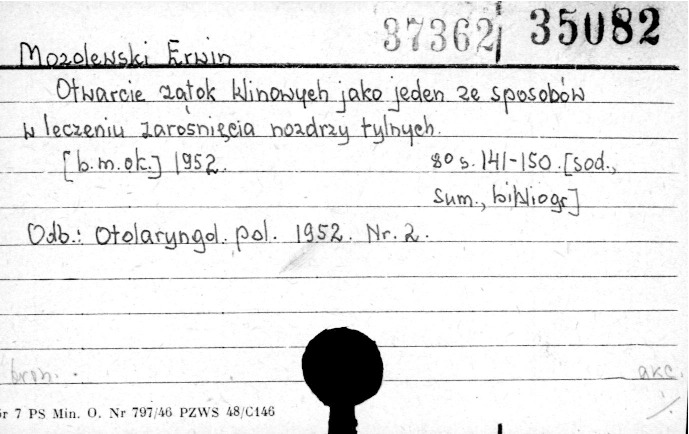 37362 35082
Mozolewski Erwin
Otwarcie zatok klinowych jako jeden ze sposobów
w leczeniu zarośnięcia nozdrzy tylnych.
[b.m.ok.] 1952. 8o s. 141-150. [sod.,
Sum., bibliogr]
Odb.: Otolaryngol. pol. 1952. Nr. 2.
bron. akc.
7 PS Min. O. Nr 797/46 PZWS 48/C146